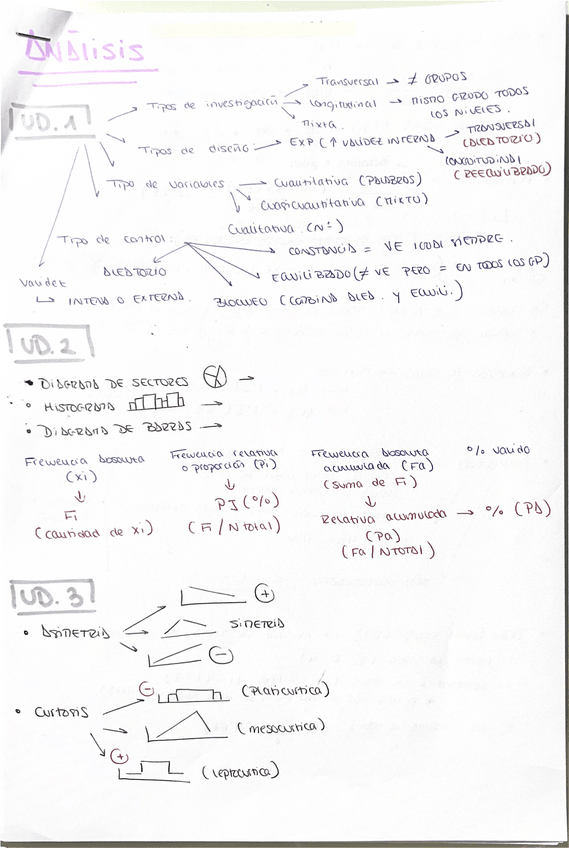 ANÁlisis
UD. 1
Tipos de investigación
Transversal → ≠ GRUPOS
Longitudinal → MISMO GRUPO TODOS
LOS NIVELES.
Mixta.
Tipos de diseño: → EXP (↑ VALIDEZ INTERNA
TRANSVERSAL
(ALEATORIO)
LONGITUDINAL
(REEQUILIBRADO)
Tipo de variables → Cuantitativa (PALABRAS)
Cuasicuantitativa (MIXTO)
Cualitativa (Nº)
Tipo de control:
CONSTANCIA = VE IGUAL SIEMPRE.
ALEATORIO
EQUILIBRADO (≠ VE PERO = EN TODOS LOS GP)
BLOQUEO (COMBINA ALEA. Y EQUILI.)
Validez
↳ INTERNA O EXTERNA.
UD. 2
• DIAGRAMA DE SECTORES →
• HISTOGRAMA →
• DIAGRAMA DE BARRAS →
Frecuencia absoluta
(xi)
↓
Fi
(cantidad de xi)
Frecuencia relativa
o proporción (Pi)
↓
PI (%)
(Fi / N TOTAL)
Frecuencia absoluta
acumulada (Fa)
(suma de Fi)
↓
Relativa acumulada → % (PA)
(Pa)
(Fa / N TOTAL)
% valido
UD. 3
• ASIMETRIA
+
SIMETRIA
−
• Curtosis
− (platicurtica)
(mesocurtica)
+ (leptocurtica)